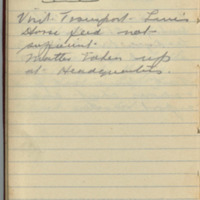 Visit Transport Lines
Horse feed not
sufficient.
Matter taken up
at Headquarters.